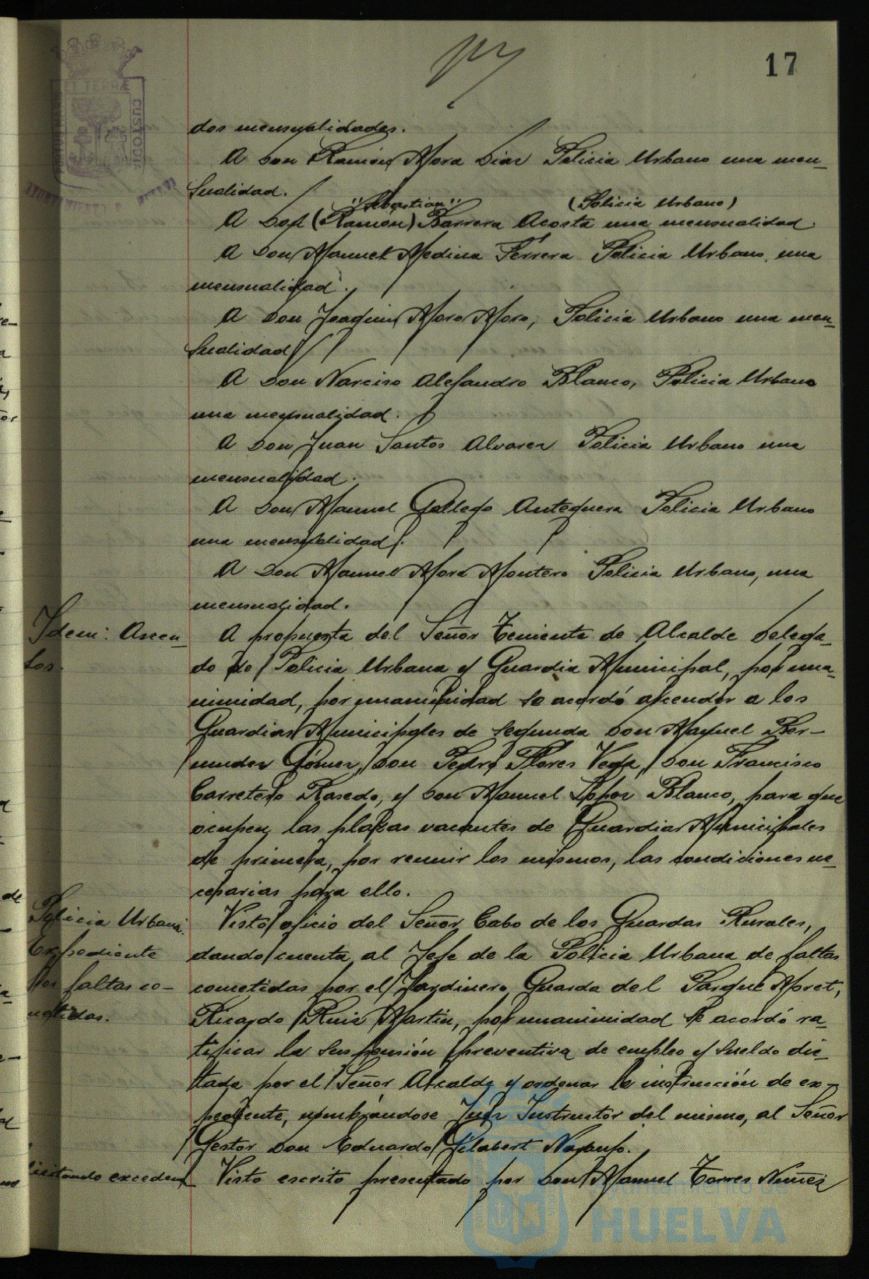 17
dos mensualidades.
A Don Ramón Mora Diaz Policia Urbano una men-
sualidad.
"Sebastian" (Policia Urbano)
A Don (Ramón) Barrera Acosta una mensualidad
A Don Manuel Medina Ferrera Policia Urbano, una
mensualidad.
A Don Joaquin Moro Moro, Policia Urbano una men-
sualidad
A Don Narciso Alejandro Blanco, Policia Urbano
una mensualidad.
A Don Juan Santos Alvarez Policia Urbano una
mensualidad.
A Don Manuel Gallego Antequera Policia Urbano
una mensualidad.
A Don Manuel Mora Montero Policia Urbano, una
mensualidad.
Idem: Ascen-
sos.
A propuesta del Señor Teniente de Alcalde Delega-
do de Policia Urbana y Guardia Municipal, por una-
nimidad, por unanimidad se acordó ascender a los
Guardias Municipales de segunda Don Manuel Ber-
mudez Gómez, Don Pedro Flores Vega, Don Francisco
Carretero Rasedo, y Don Manuel López Blanco, para que
ocupen las plazas vacantes de Guardias Municipales
de primera, por reunir los mismos, las condiciones ne-
cesarias para ello.
Policia Urbana.
Expediente
por faltas co-
metidas.
Visto oficio del Señor Cabo de los Guardas Rurales,
dando cuenta al Jefe de la Policia Urbana de faltas
cometidas por el Jardinero Guarda del Parque Moret,
Ricardo Ruiz Martin, por unanimidad se acordó ra-
tificar la suspensión preventiva de empleo y sueldo dic-
tada por el Señor Alcalde y ordenar la instrucción de ex-
pediente, nombrándose Juez Instructor del mismo, al Señor
Gestor Don Eduardo Gilabert
licitando exceden
Visto escrito presentado por Don Manuel Torres Nuñez
Ayuntamiento de
HUELVA